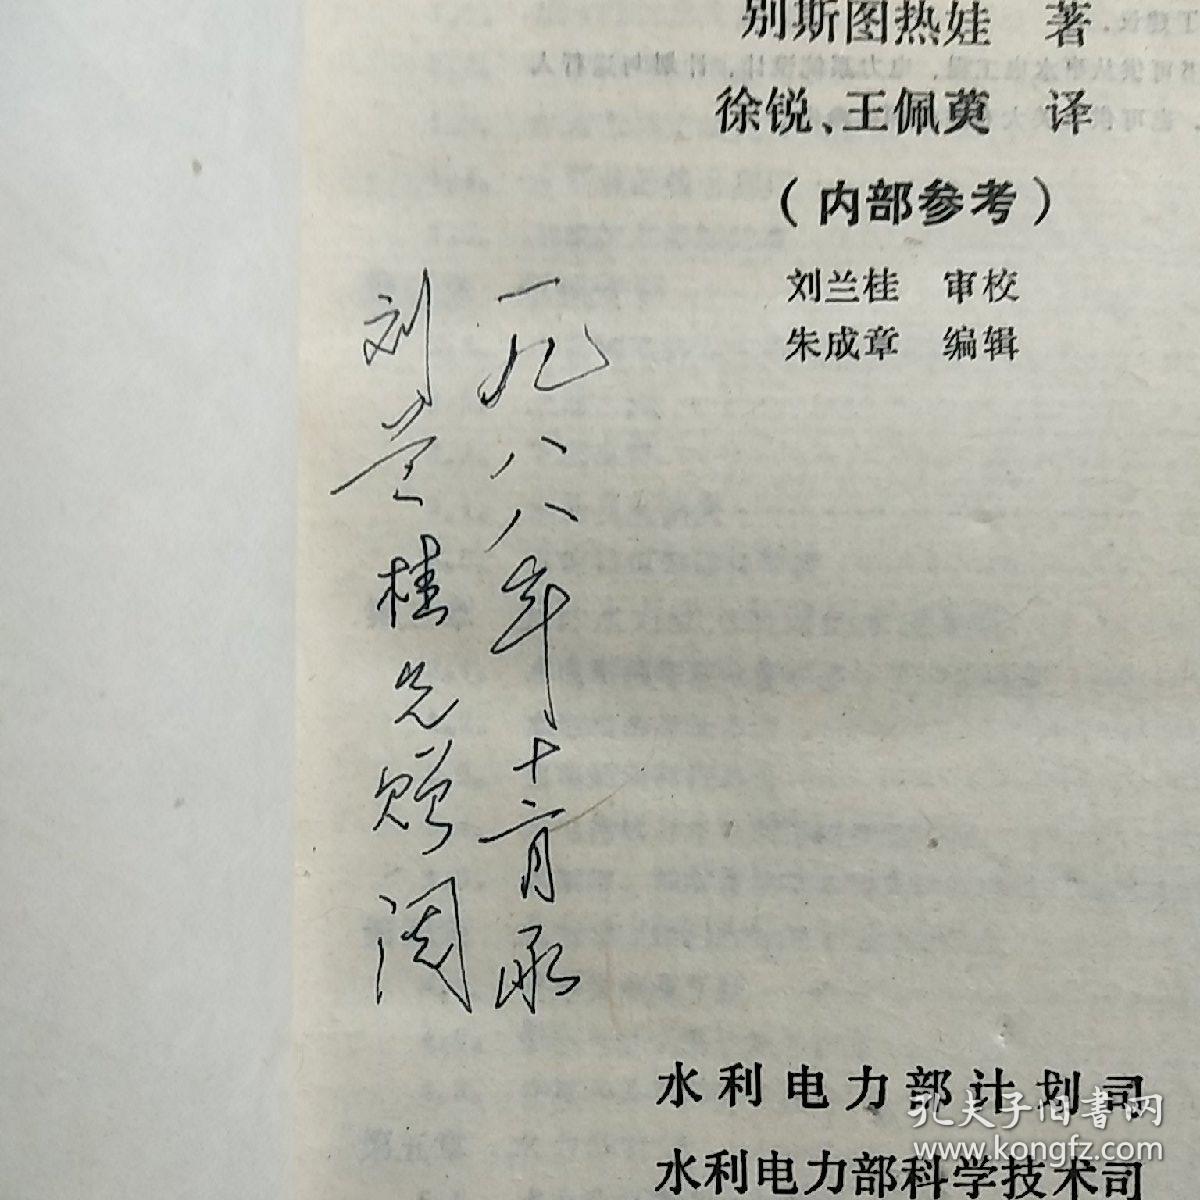 别斯图热娃 著
徐锐、王佩萸 译
(内部参考)
刘兰桂 审校
朱成章 编辑
一九八八年十一月承
刘兰桂兄赠阅
水利电力部计划司
水利电力部科学技术司
孔夫子旧书网
www.kongfz.com